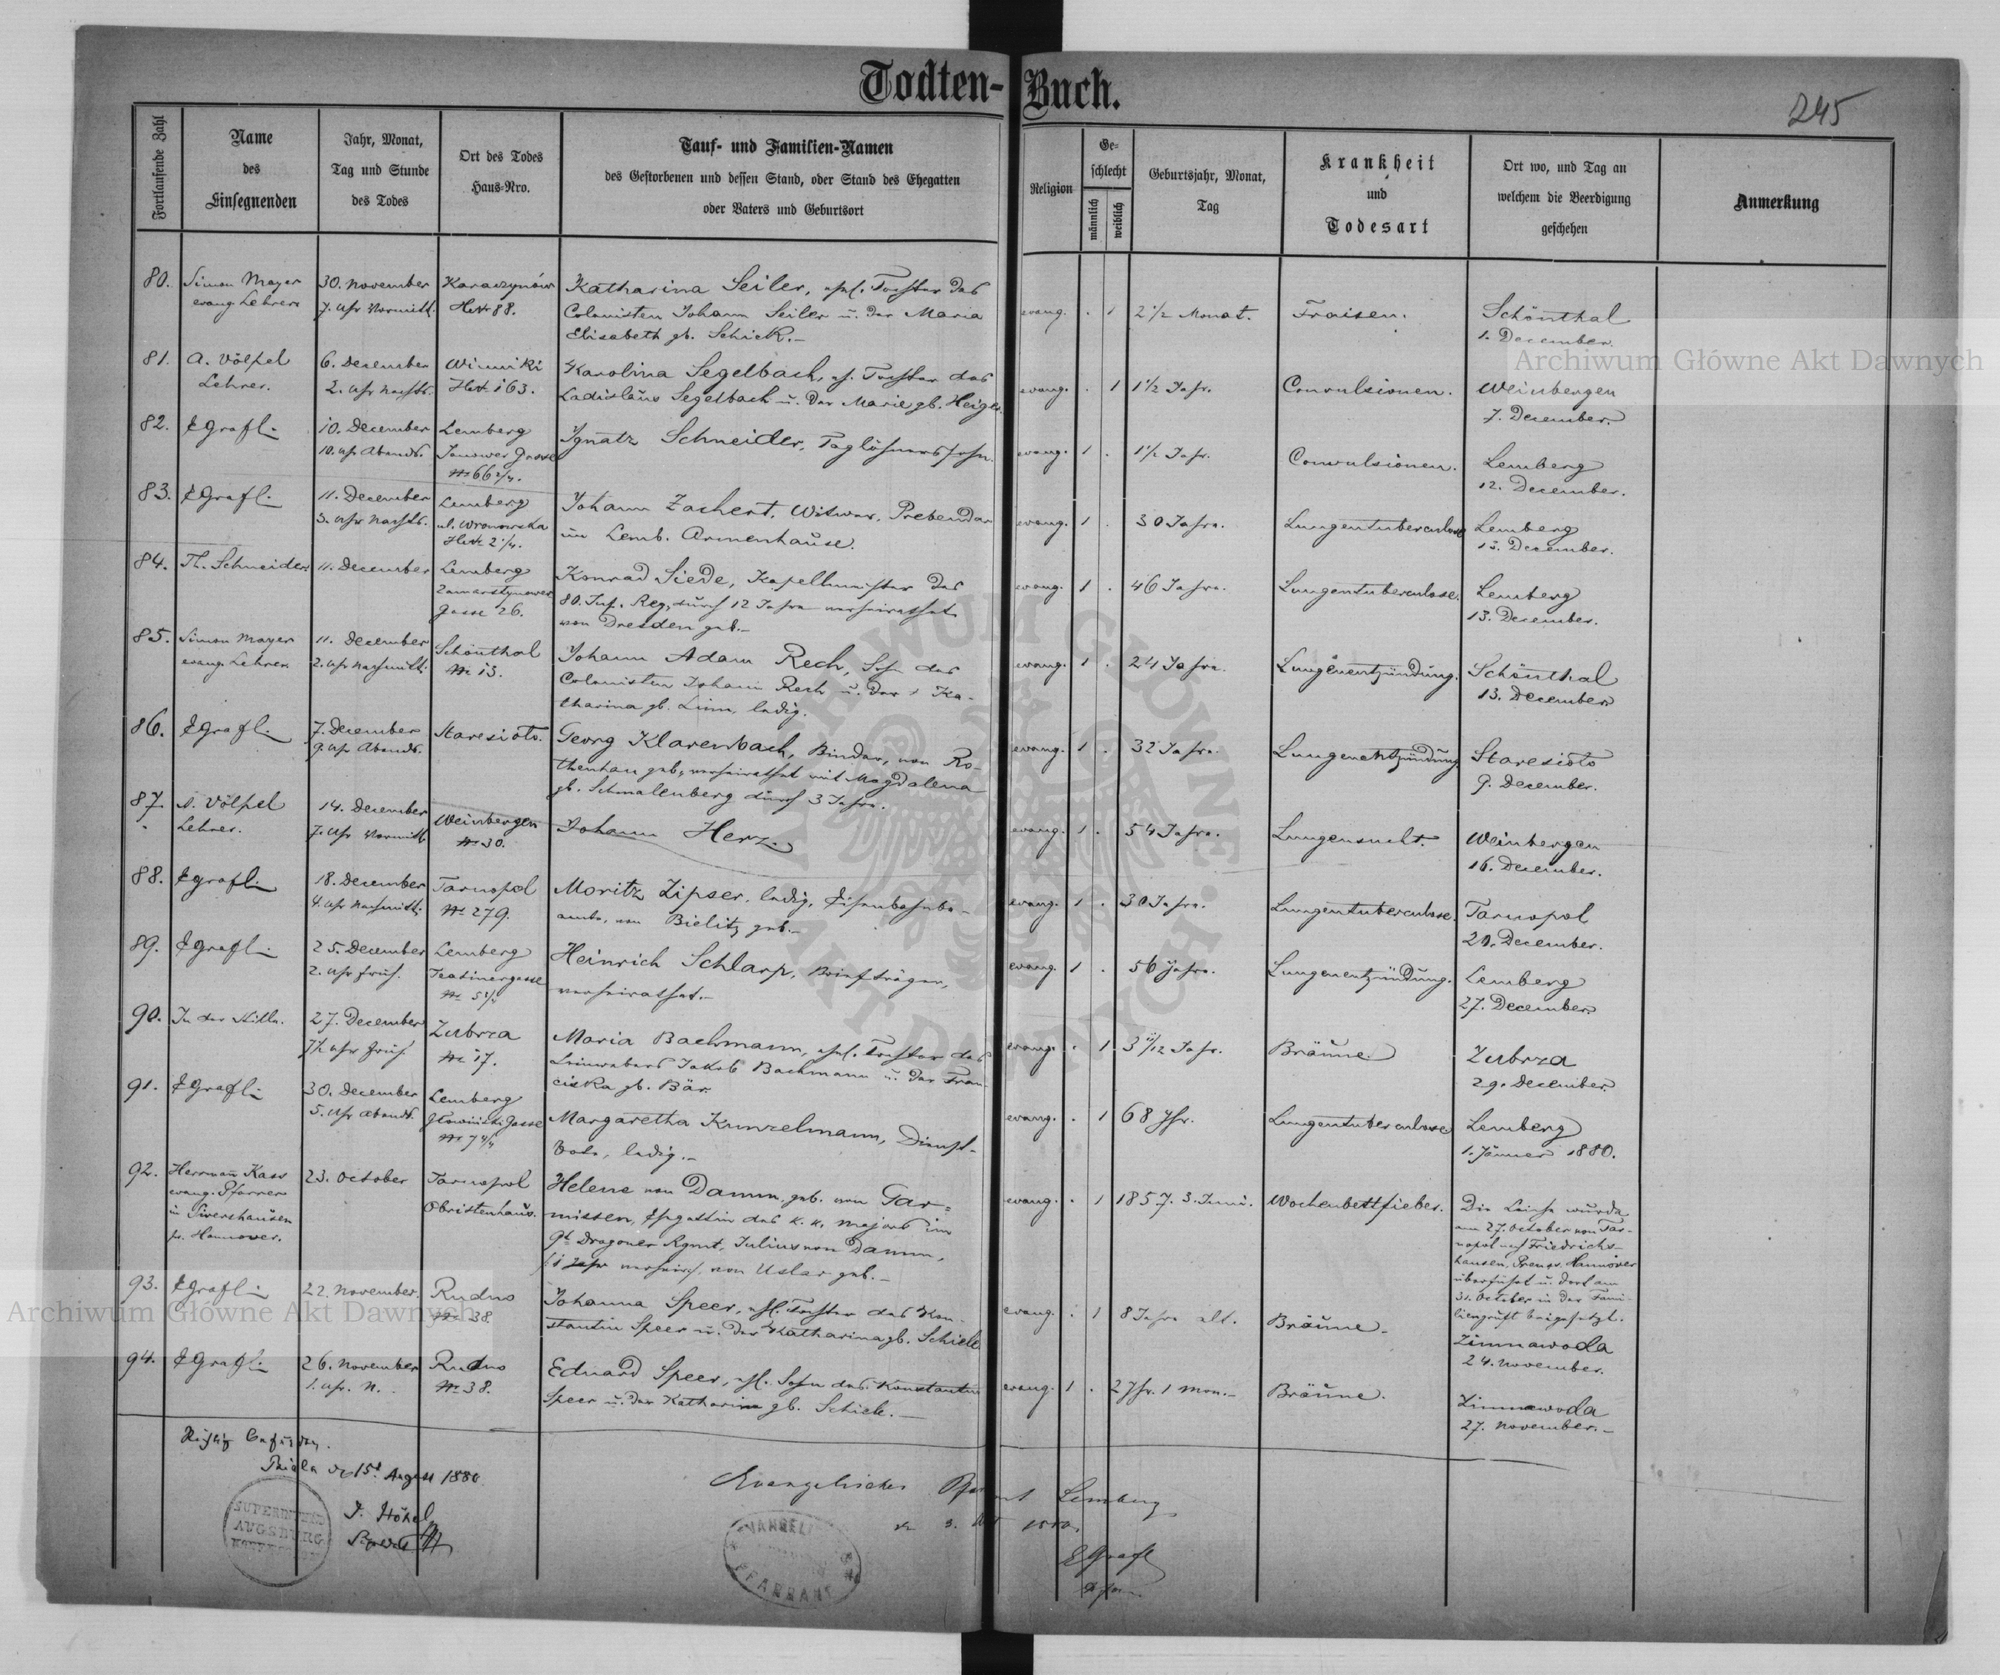 Todten-Buch.
245
Fortlaufende Zahl
Name
des
Einsegnenden
Jahr, Monat,
Tag und Stunde
des Todes
Ort des Todes
Haus-Nro.
Tauf- und Familien-Namen
des Gestorbenen und dessen Stand, oder Stand des Ehegatten
oder Vaters und Geburtsort
Religion
Ge-
schlecht
männlich
weiblich
Geburtsjahr, Monat,
Tag
Krankheit
und
Todesart
Ort wo, und Tag an
welchem die Beerdigung
geschehen
Anmerkung
80.
Simon Mayer
evang. Lehrer
30. November
7. Uhr Vormitt.
Karaczynów
HNr 88.
Katharina Seiler, ehl. Tochter des
Colonisten Johann Seiler u. der Maria
Elisabeth gb. Schick.–
evang. . 1
2 1/2 Monat.
Fraisen.
Schönthal
1. December.
81.
A. Völpel
Lehrer.
6. December
2. Uhr Nachts.
Winniki
HNr 163.
Karolina Segelbach, eh. Tochter des
Ladislaus Segelbach u. der Marie gb. Heiger
evang. . 1
1 1/2 Jahr.
Convulsionen.
Weinbergen
7. December.
82.
EGrafl.
10. December
10. Uhr Abends.
Lemberg
Janower Gasse
Nr 66 2/4.
Ignatz Schneider, Taglöhnerssohn.
evang. 1 .
1 1/2 Jahr.
Convulsionen.
Lemberg
12. December.
83.
EGrafl.
11. December
3. Uhr Nachts.
Lemberg
ul. Wronowska
HNr 2 1/4.
Johann Zachert, Witwer, Prebendar
im Lemb. Armenhause.
evang. 1 .
30 Jahre.
Lungentuberculose
Lemberg
13. December.
84.
Th. Schneider.
11. December
Lemberg
Zamarstynower
Gasse 26.
Konrad Siede, Kapellmeister des
80. Inf. Reg., durch 12 Jahre verheirathet
von Dresden geb.–
evang. 1 .
46 Jahre.
Lungentuberculose.
Lemberg
13. December.
85.
Simon Mayer
evang. Lehrer
11. December
2. Uhr Nachmitt.
Schönthal
Nr 13.
Johann Adam Rech, Sohn des
Colonisten Johann Rech u. der † Ka-
tharina gb. Linn, ledig.
evang. 1 .
24 Jahre.
Lungenentzündung.
Schönthal
13. December
86.
EGrafl.
7. December
9. Uhr Abends.
Staresioto.
Georg Klarenbach, Binder, von Ro-
thenhan geb., verheirathet mit Magdalena
gb. Schmalenberg durch 3 Jahre.
evang. 1 .
32 Jahre.
Lungenentzündung
Staresioto
9. December.
87.
A. Völpel
Lehrer.
14. December
7. Uhr Vormitt.
Weinbergen
Nr 30.
Johann Herz.
evang. 1 .
54 Jahre.
Lungensucht.
Weinbergen
16. December.
88.
EGrafl.
18. December
4. Uhr Nachmitt.
Tarnopol
Nr 279.
Moritz Zipser, ledig, Eisenbahnbe-
amte, von Bielitz geb.–
evang. 1 .
30 Jahre.
Lungentuberculose.
Tarnopol
20. December.
89.
EGrafl.
25. December
2. Uhr früh.
Lemberg
Teatinergasse
Nr 5 1/4
Heinrich Schlarp, Briefträger,
verheirathet.–
evang. 1 .
56 Jahre.
Lungenentzündung.
Lemberg
27. December.
90.
In der Stille.
27. December
7 1/2 Uhr früh
Zubrza
Nr 17.
Maria Bachmann, ehl. Tochter des
Leinwebers Jakob Bachmann u. der Fran-
ciska gb. Bär.
evang. . 1
Bräune.
Zubrza
29. December.
91.
EGrafl.
30. December
5. Uhr Abends.
Lemberg
Nr 7 4/4
Margaretha Kunzelmann, Dienst-
bote, ledig.–
evang. . 1
68 Jhr.
Lungentuberculose
Lemberg
1. Jänner 1880.
92.
Herrmañ Kass
evang. Pfarrer
in Sievershausen
pr. Hannover.
23. October
Tarnopol
Obristenhaus.
Helene von Damm, geb. von Gar-
missen, Ehgattin des k. k. Majors im
9t. Dragoner Rgmt, Julius von Damm,
1 Jahr verheir. von Uslar geb.–
evang. . 1
1857. 3. Juni.
Wochenbettfieber.
Die Leiche wurde
am 27. October von Tar-
nopol nach Friedrichs-
hausen, Preuss. Hannover
überführt u. dort am
31. October in der Fami-
liengruft beigesetzt.
93.
EGrafl.
22. November.
Rudno
Nr 38.
Johanna Speer, ehl. Tochter des Kon-
stantin Speer u. der Katharina gb. Schick
evang. . 1
8 Jahre alt.
Bräune.
Zimnawoda
24. November.
94.
EGrafl.
26. November
1. Uhr. N.
Rudno
Nr 38.
Eduard Speer, ehl. Sohn des Konstantin
Speer u. der Katharina gb. Schick.–
evang. 1 .
2 Jhr. 1 Mon.–
Bräune.
Zimnawoda
27. November.–
Richtig befunden.
Biala den 15t August 1880
Evangelisches Pfarramt Lemberg
EGrafl
Pfarrer
SUPERINTEND
AUGSBURG
EVANGEL
PFARRAMT
Archiwum Główne Akt Dawnych
Archiwum Główne Akt Dawnych
ARCHIWUM GŁÓWNE AKT DAWNYCH